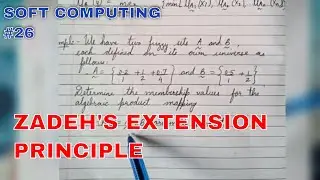 SOFT COMPUTING
#26
We have two fuzzy sets A and B
each defined on its own universe as
follows:
A = {0.2/1 + 1/2 + 0.7/4} and B = {0.5/1 + 1/2}
Determine the membership values for the
algebraic product mapping
ZADEH'S EXTENSION
PRINCIPLE